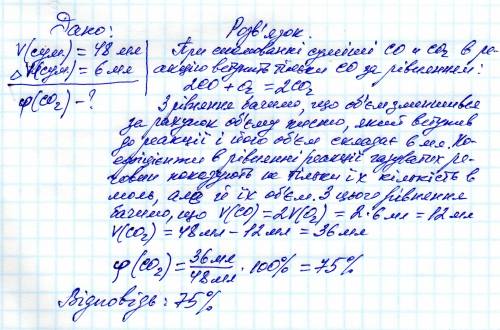 Дано:
Розв'язок.
V(сум) = 48 мл
ΔV(сум) = 6 мл
φ(CO₂) - ?
При спалюванні суміші CO и CO₂ в ре-
акцію вступить тільки CO за рівнянням:
2CO + O₂ = 2CO₂
З рівняння бачимо, що об'єм зменшився
за рахунок об'єму кисню, який вступив
до реакції і його об'єм складає 6 мл. Ко-
ефіцієнти в рівнянні реакції газуватих ре-
човин показують не тільки їх кількість в
моль, але й їх об'єм. З цього рівняння
бачимо, що V(CO) = 2V(O₂) = 2·6 мл = 12 мл
V(CO₂) = 48 мл - 12 мл = 36 мл
φ(CO₂) = 36 мл / 48 мл · 100% = 75%
Відповідь: 75%